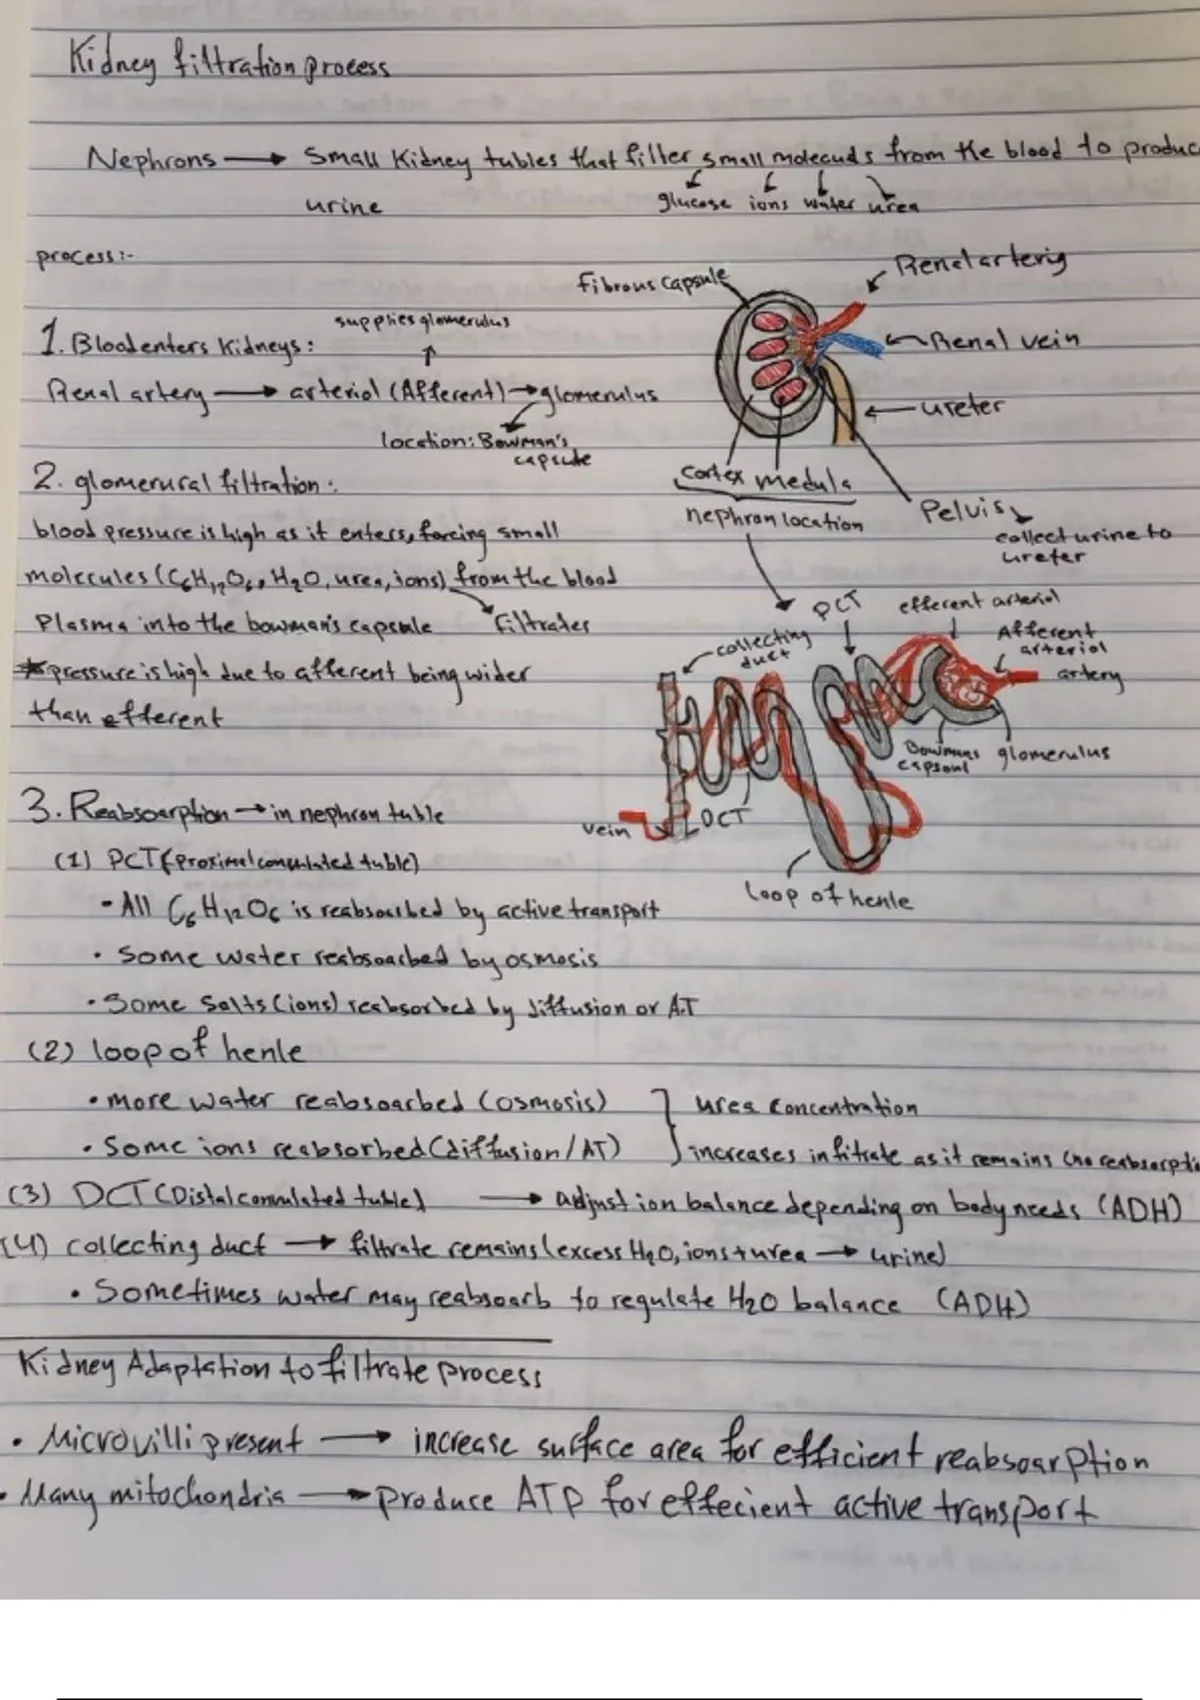 Kidney filtration process
Nephrons → Small Kidney tubles that filter small molecuds from the blood to produc
urine
glucose ions water urea
process:-
Fibrous Capsule
Renal artery
supplies glomerulus
1. Blood enters Kidneys:
Renal vein
Renal artery → arteriol (Afferent) → glomerulus
ureter
location: Bowman's
capsule
cortex medula
2. glomerural filtration:
nephron location
Pelvis
collect urine to
ureter
blood pressure is high as it enters, forcing small
molecules (C6H12O6, H2O, urea, ions) from the blood
Plasma into the bowman's capsule
filtrates
PCT
efferent arteriol
Afferent
arteriol
artery
collecting
duct
* pressure is high due to afferent being wider
than efferent
Bowmans
capsoul
glomerulus
3. Reabsoarption → in nephron tuble
vein
DCT
(1) PCT (proximal convulated tuble)
loop of henle
• All C6H12O6 is reabsoarbed by active transport
• Some water reabsoarbed by osmosis
• Some Salts (ions) reabsorbed by diffusion or A.T
(2) loop of henle
• more water reabsoarbed (osmosis)
urea concentration
• Some ions reabsorbed (diffusion/AT)
increases in fitrate as it remains (no reabsorptio
(3) DCT (Distal convulated tuble) → adjust ion balance depending on body needs (ADH)
(4) collecting duct → filtrate remains (excess H2O, ions + urea → urine)
• Sometimes water may reabsoarb to regulate H2O balance (ADH)
Kidney Adaptation to filtrate process
• Microvilli present → increase surface area for efficient reabsoarption
• Many mitochondria → produce ATP for effecient active transport